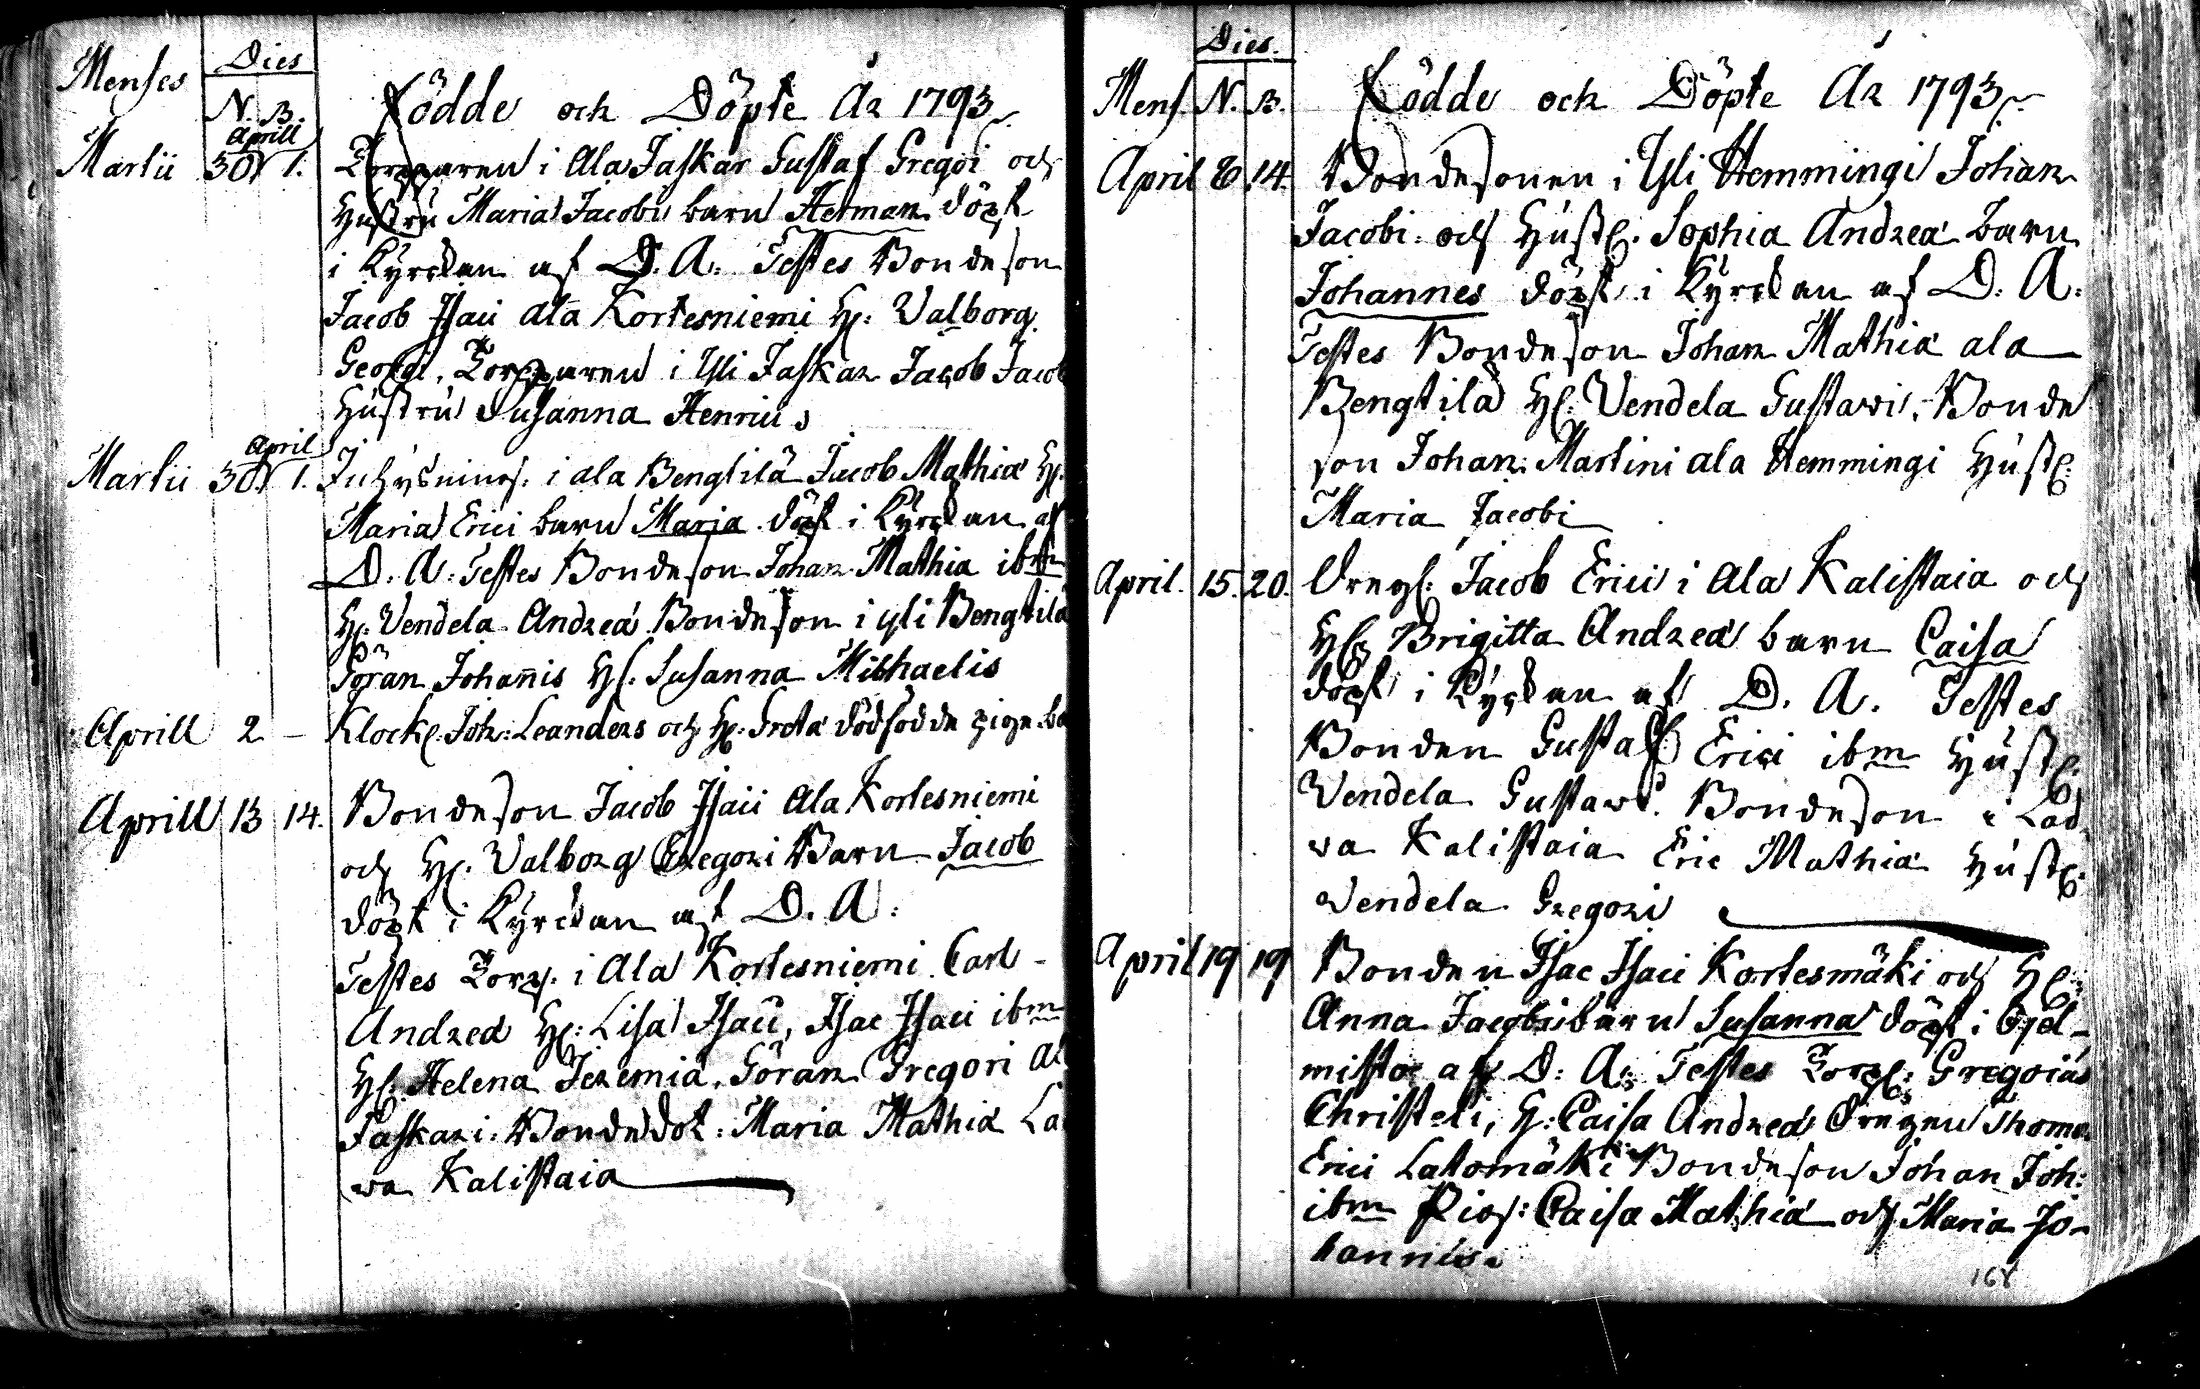 Menses Dies
N. B.
Födde och Döpte År 1793
Aprill
Martii 30 1. Torpparen i Ala Jaskar Gustaf Gregori och
Hustru Maria Jacobi barn Herman döpt
i Kyrckan af D. A. Testes Bondeson
Jacob Isaci ala Kortesniemi H: Valborg
Georgi, Torpparen i Yli Jaskar Jacob Jacob
Hustru Susanna Henrici
April
Martii 30 1. i ala Bengtilä Jacob Mathiæ H:
Maria Erici barn Maria döpt i Kyrckan af
D. A. Testes Bondeson Johan Mathiæ ibm
H: Vendela Andreæ Bondeson i yli Bengtilä
Göran Johannis H: Susanna Michaelis
Aprill 2 – Klock: Joh: Leanders och H: Greta dödfödde
Aprill 13 14. Bondeson Jacob Isaci Ala Kortesniemi
och H: Valborg Gregori Barn Jacob
döpt i Kyrckan af D. A:
Testes Torp: i Ala Kortesniemi Carl
Andreæ H: Lisa Isaci, Isac Isaci ibm
H: Helena Jeremiæ, Göran Gregori Al
Jaskari Bondedot: Maria Mathiæ La
wa Kalistaja
Dies.
Mens. N. B. Födde och Döpte År 1793
April 8 14. Bondesonen i Yli Hemmingi Johan
Jacobi och Hust: Sophia Andreæ barn
Johannes döpt i Kyrckan af D. A:
Testes Bondeson Johan Mathiæ ala
Bengtilä H: Vendela Gustavi, Bonde
son Johan Martini ala Hemmingi Hust:
Maria Jacobi
April. 15. 20. Dreng: Jacob Erici i Ala Kalistaia och
H: Brigitta Andreæ barn Caisa
döpt i Kyrckan af D. A. Testes
Bonden Gustaf Erici ibm Hust:
Vendela Gustavi. Bondeson i Lad
wa Kalistaia Eric Mathiæ Hust:
Vendela Gregori
April 19 19 Bonden Isac Isaci Kortesmäki och H:
Anna Jacobi barn Susanna döpt i
af D: A: Testes Torp: Gregorius
Christeri, H: Caisa Andreæ Drengen Thomas
Erici Latomäki Bondeson Johan Joh:
ibm Pig: Caisa Mathiæ och Maria Jo-
hannis.
168